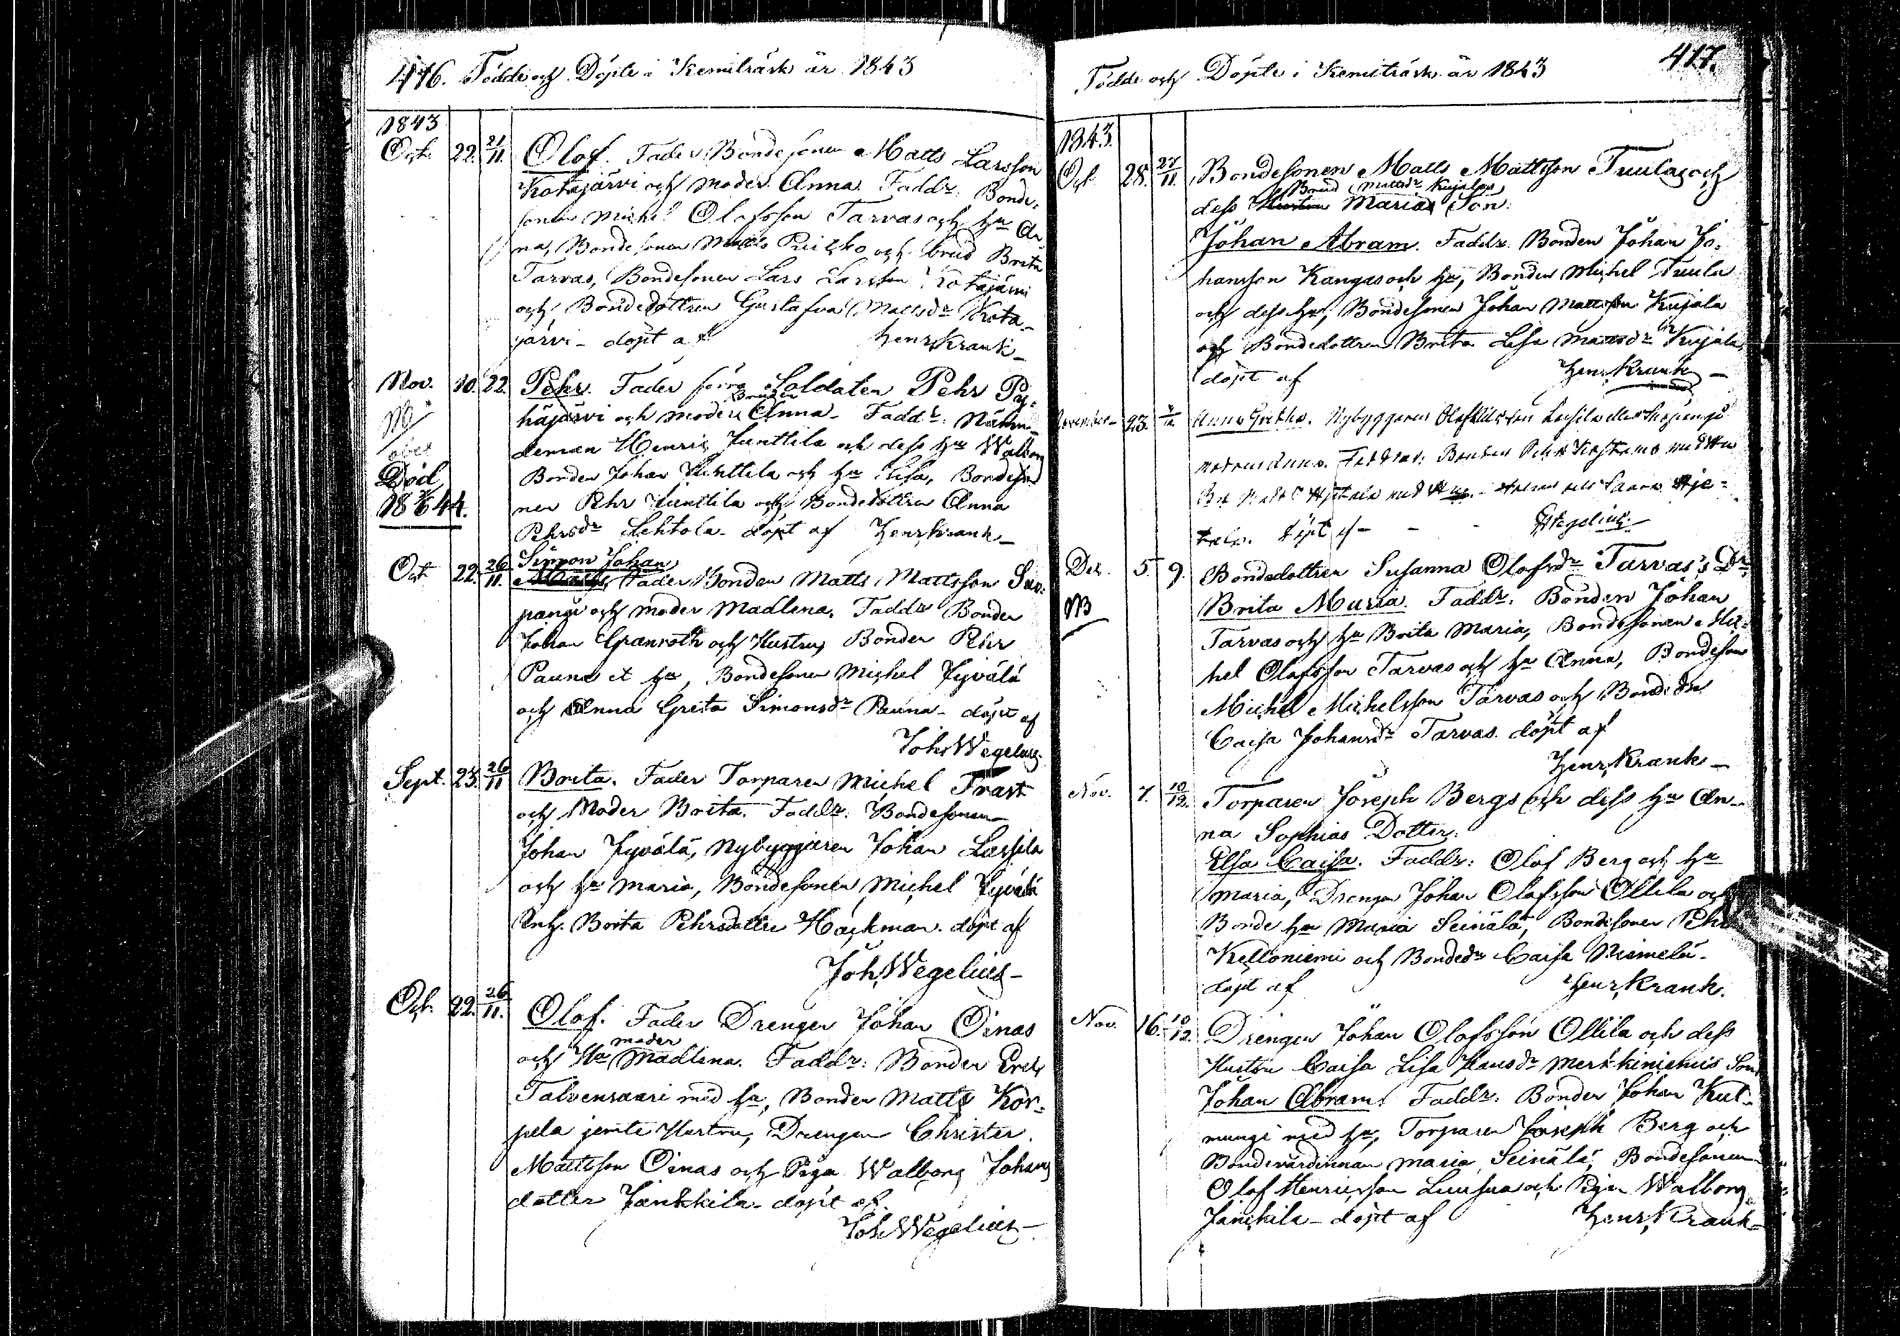 416. Födde och Döpte i Kemiträsk år 1843
1843
Oct. 22. 21/11. Olof. Fader Bondesonen Matts Larsson
Kotajärvi och moder Anna. Faddr. Bonde-
sonen Michel Olofsson Tarvas och hu An-
na, Bondesonen Matts och brud Brita
Tarvas, Bondesonen Lars Larsson Kotajärvi
och Bondedottren Gustafva Mattsdr Kota-
järvi - döpt af Henr. Krank -
Nov. 10. 22. Pehr. Fader förre Soldaten Pehr Py-
häjärvi och moder Anna. Faddr. Nämn-
deman Henric Junttila och dess hu Walborg
Bonden Johan Junttila och hu Lisa, Bondeso-
nen Pehr Junttila och Bondedottren Anna
Pehrsdr Lehtola. döpt af Henr. Krank -
NB
Död
18 44.
Simon Johan
Oct. 22. 26/11. Fader Bonden Matts Mattsson
och moder Madlena. Faddr Bonden
Johan Granroth och Hustru, Bonden Pehr
Pauna et hu, Bondesonen Michel Jyvälä
och Anna Greta Simonsdr Pauna - döpt af
Joh. Wegelius
Sept. 23. 26/11 Brita. Fader Torparen Michel Trast
och Moder Brita. Faddr: Bondesonen
Johan Jyvälä, Nybyggaren Johan Lassila
och hu Maria, Bondesonen Michel Jyvälä
Brita Pehrsdotter Hackman. döpt af
Joh. Wegelius -
Oct. 22. 26/11. Olof. Fader Drengen Johan Oinas
moder
och Hu Madlena. Faddr: Bonden Eric
Talvensaari med hu, Bonden Matts Kor-
pela jemte Hustru, Drengen Christer
Mattsson Oinas och Piga Walborg Johans
dotter Jankkila - döpt af
Joh. Wegelius -
Födde och Döpte i Kemiträsk år 1843 417.
1843.
Oct. 28. 27/11. Bondesonen Matts Mattsson Tuulas och
Brud Mattsdr Kujalas
dess Hustru Marias Son:
Johan Abram. Faddr. Bonden Johan Jo-
hansson Kangas och hu, Bonden Michel Tuula
och dess hu, Bondesonen Johan Mattsson Kujala
och Bondedottren Brita Lisa Mattsdr Kujala,
döpt af Henr. Krank -
November 23. Anna Gretha. Nybyggaren Olof Lassila
modren Anna. Faddrar: Bonden Pehr med Hu
döpt af - - - Wegelius
Dec. 5. 9. Bondedottren Susanna Olofsdr Tarvas's Dr,
NB
Brita Maria. Faddr. Bonden Johan
Tarvas och hu Brita Maria, Bondesonen Mic-
hel Olofsson Tarvas och hu Anna, Bondeson
Michel Michelsson Tarvas och Bondedr
Caisa Johansdr Tarvas. döpt af
Henr. Krank -
Nov. 7. 10/12. Torparen Joseph Bergs och dess hu An-
na Sophias Dotter:
Elsa Caisa. Faddr: Olof Berg och hu
Maria, Drengen Johan Olofsson Ollila och
Bonde hu Maria Seinälä, Bondesonen Pehr
Kelloniemi och Bondedr Caisa Niemelä -
döpt af Henr. Krank.
Nov. 16. 10/12. Drengen Johan Olofsson Ollila och dess
Hustru Caisa Lisa Hansdr Son
Johan Abram. Faddr. Bonden Johan Kul-
mungi med hu, Torparen Joseph Berg och
Bondevärdinnan Maria Seinälä, Bondesonen
Olof Henricsson Luusua och Pigan Walborg
Janckila - döpt af Henr. Krank -